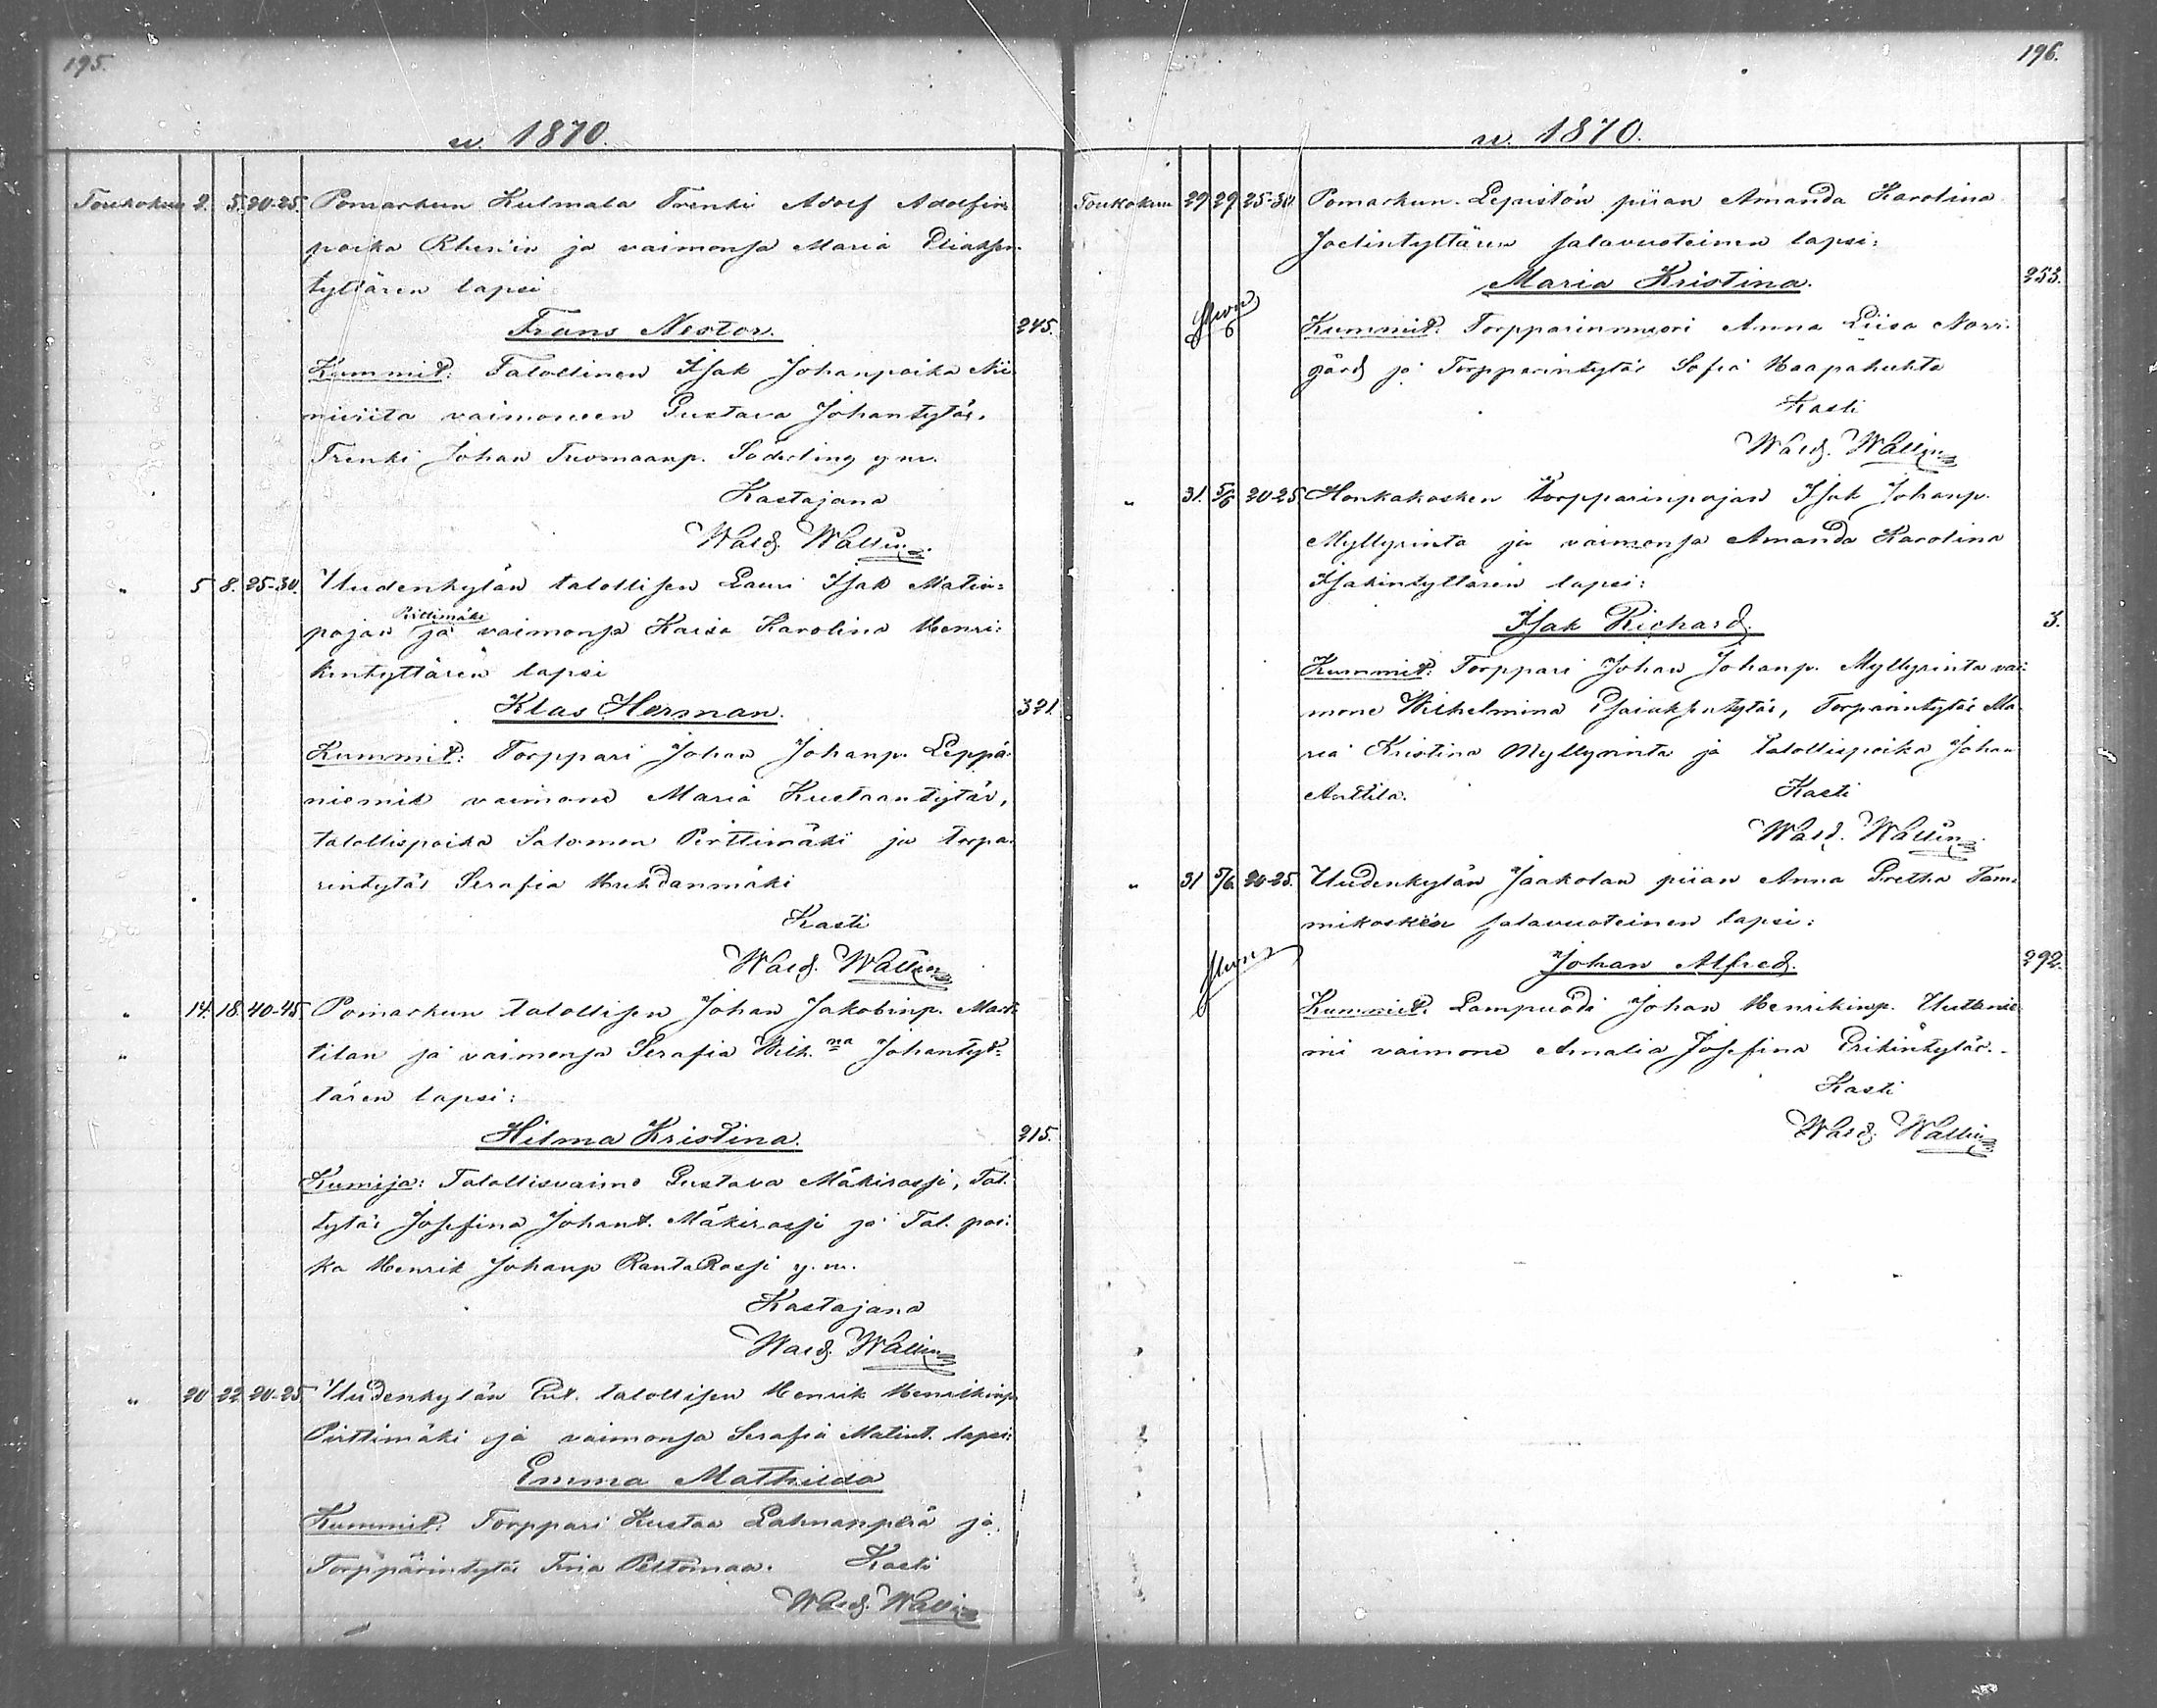 195.
w. 1870.
Toukokuu 2. 5. 20-25. Pomarkun Kulmala Trenki Adolf Adolfin
poika ja vaimonsa Maria Eliaksen
tyttären lapsi
Frans Nestor. 245.
Kummit: Talollinen Isak Johanpoika Nii
niviita vaimoneen Gustava Johantytär,
Trenki Johan Tuomaanp. Söderling y m.
Kastajana
Wald. Wallin
" 5 8. 25-30. Uudenkylän talollisen Lauri Isak Matin=
Pirttimäki
pojan ja vaimonsa Kaisa Karolina Henri=
kintyttären lapsi
Klas Herman. 321.
Kummit: Torppari Johan Johanp. Leppä
niemis vaimone Maria Kustaantytär,
talollispoika Salomon Pirttimäki ja torpa
rintytär Serafia
Kasti
Wald. Wallin
" 14. 18. 40-45. Pomarkun talollisen Johan Jakobinp. Mart
" tilan ja vaimonsa Serafia Wilh.na Johantyt=
tären lapsi:
Hilma Kristina. 215.
Kumija: Talollisvaimo Gustava Mäkirassi, Tal.
tytär Josefina Johant. Mäkirassi ja Tal. poi
ka Henrik Johanp Ranta Rossi y. m.
Kastajana
Wald. Wallin
" 20 22. 20-25. Uudenkylän Ent. talollisen Henrik Henrikinp
Pirttimäki ja vaimonsa Serafia Matint. lapsi:
Emma Mathilda
Kummit: Torppari Kustaa Lahnanperä ja
Torppärintytär Fria Peltomaa. Kasti
Wald. Wallin
196.
w. 1870.
Toukokuu 29 29 25-30 Pomarkun Lepistön piian Amanda Karolina
Joelintyttären salavuoteinen lapsi:
Maria Kristina. 253.
Kummit: Torpparinmuori Anna Liisa Norr
gård ja Torpparintytär Sofia Haapahuhta
Kasti
Wald. Wallin
" 31. 5/6 20-25 Honkakosken Torpparinpojan Isak Johanp.
Myllyrinta ja vaimonsa Amanda Karolina
Isakintyttären lapsi:
Isak Richard. 3.
Kummit: Torppari Johan Johanp. Myllyrinta vai
mone Wilhelmina Esaiaksentytär, Torparintytär Ma
ria Kristina Myllyrinta ja talollispoika Johan
Anttila. Kasti
Wald. Wallin
" 31 5/6. 20-25. Uudenkylän Jaakolan piian Anna Gretha Tam
mikosken salavuoteinen lapsi:
Johan Alfred. 292.
Kummit. Lampuodi Johan Henrikinp. Uuttanie
mi vaimone Amalia Josefina Erikintytär.
Kasti
Wald. Wallin